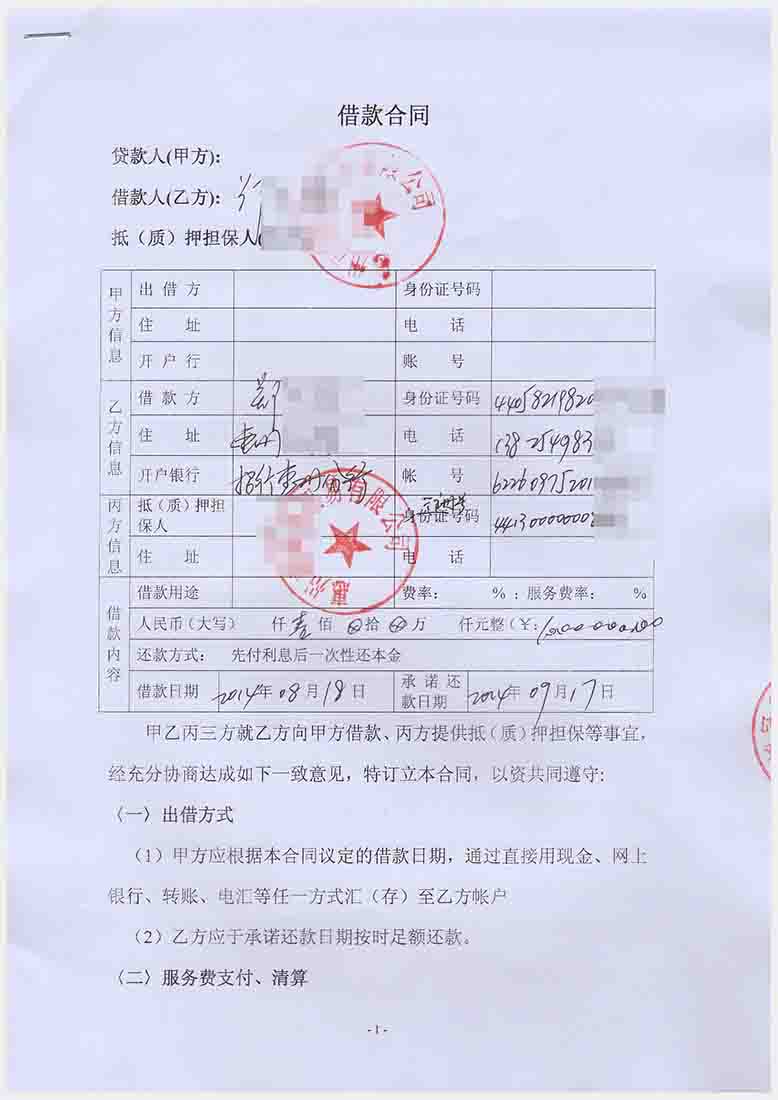 借款合同
贷款人(甲方):
借款人(乙方):
抵（质）押担保人(
公司
惠州
甲方信息
出 借 方 身份证号码
住 址 电 话
开 户 行 账 号
乙方信息
借 款 方 身份证号码 44058219820
住 址 惠州 电 话 138254983
开户银行 招行惠州 帐 号 62260975201
丙方信息
抵（质）押担保人 身份证号码 44130000000
易有限公司
惠州
住 址 电 话
借款内容
借款用途 费率： %；服务费率： %
人民币（大写） 仟壹佰⊗拾⊗万 仟元整（￥:
还款方式： 先付利息后一次性还本金
借款日期 2014年08月18日 承诺还款日期 2014年09月17日
甲乙丙三方就乙方向甲方借款、丙方提供抵（质）押担保等事宜，
经充分协商达成如下一致意见，特订立本合同，以资共同遵守:
〈一〉出借方式
（1）甲方应根据本合同议定的借款日期，通过直接用现金、网上
银行、转账、电汇等任一方式汇（存）至乙方帐户
（2）乙方应于承诺还款日期按时足额还款。
〈二〉服务费支付、清算
- 1 -